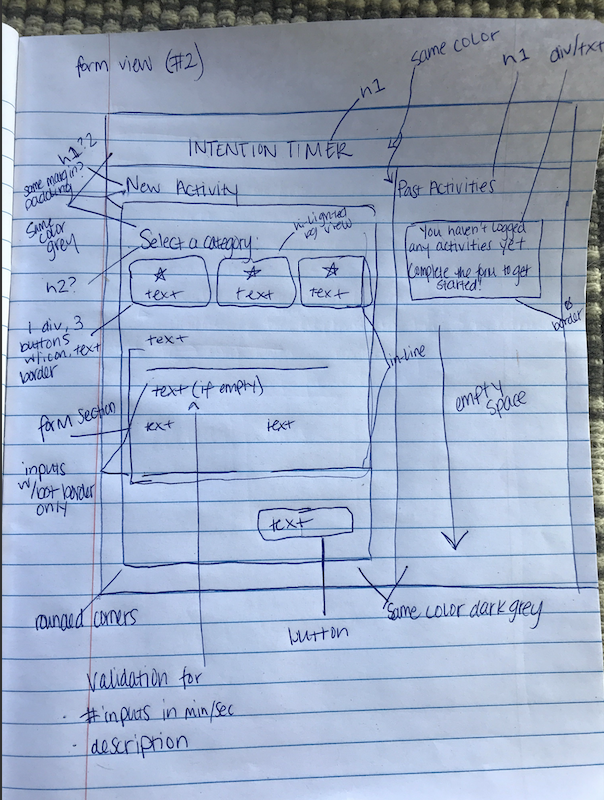 form view (#2)
same color
h1
div/txt
h1
INTENTION TIMER
h1? 2
same margin>
padding
New Activity
Past Activities
same
color
grey
Select a category:
hi-lighted
w/ view
You haven't logged
any activities yet
Complete the form to get
started!
h2?
text
text
text
border
1 div, 3
buttons
w/icon, text
border
text
in-line
text (if empty)
empty
space
form section
text
text
inputs
w/bot border
only
text
rounded corners
same color dark grey
button
validation for
· # inputs in min/sec
· description